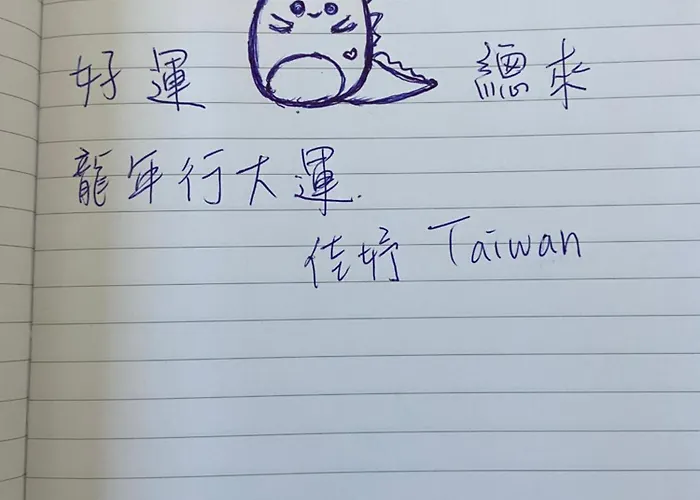 好運 總來
龍年行大運.
佳婷 Taiwan